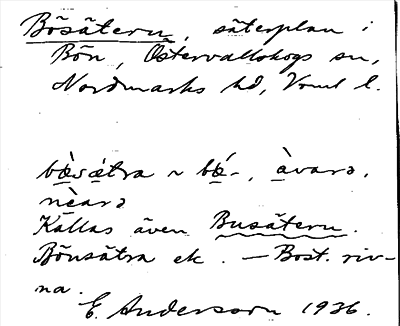 Bösätern, säterplan i
Bön, Östervallskogs sn,
Nordmarks hd, Vrml l.
bœ̀sœ́tra ~ bœ́-, àvarə,
nèarə
Kallas även Busätern.
Bönsätra ek. — Bost. riv-
na.
E. Andersson 1936.